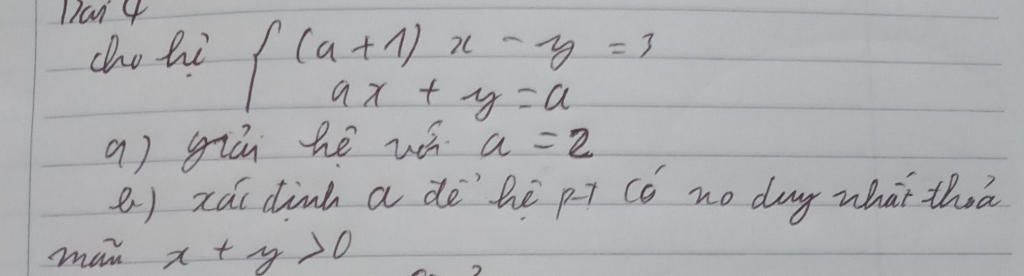 Bài 4
cho hệ { (a + 1) x - y = 3
ax + y = a
a) giải hệ với a = 2
b) xác định a để hệ pt có no duy nhất thoả
mãn x + y > 0